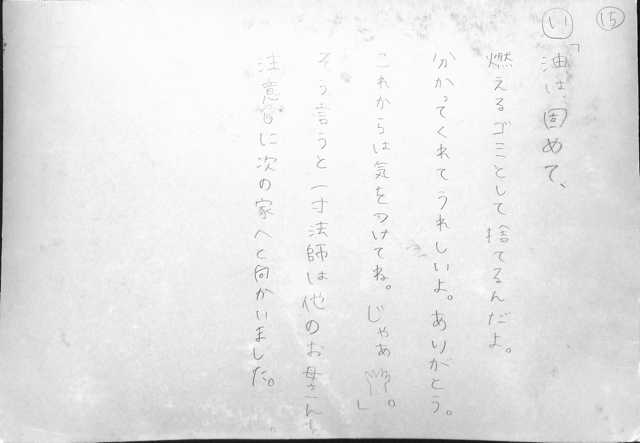 15
い
「油は、固めて、
燃えるゴミとして捨てるんだよ。
分かってくれてうれしいよ。ありがとう。
これからは気をつけてね。じゃあ。」
そう言うと一寸法師は他のお母さんも
注意しに次の家へと向かいました。